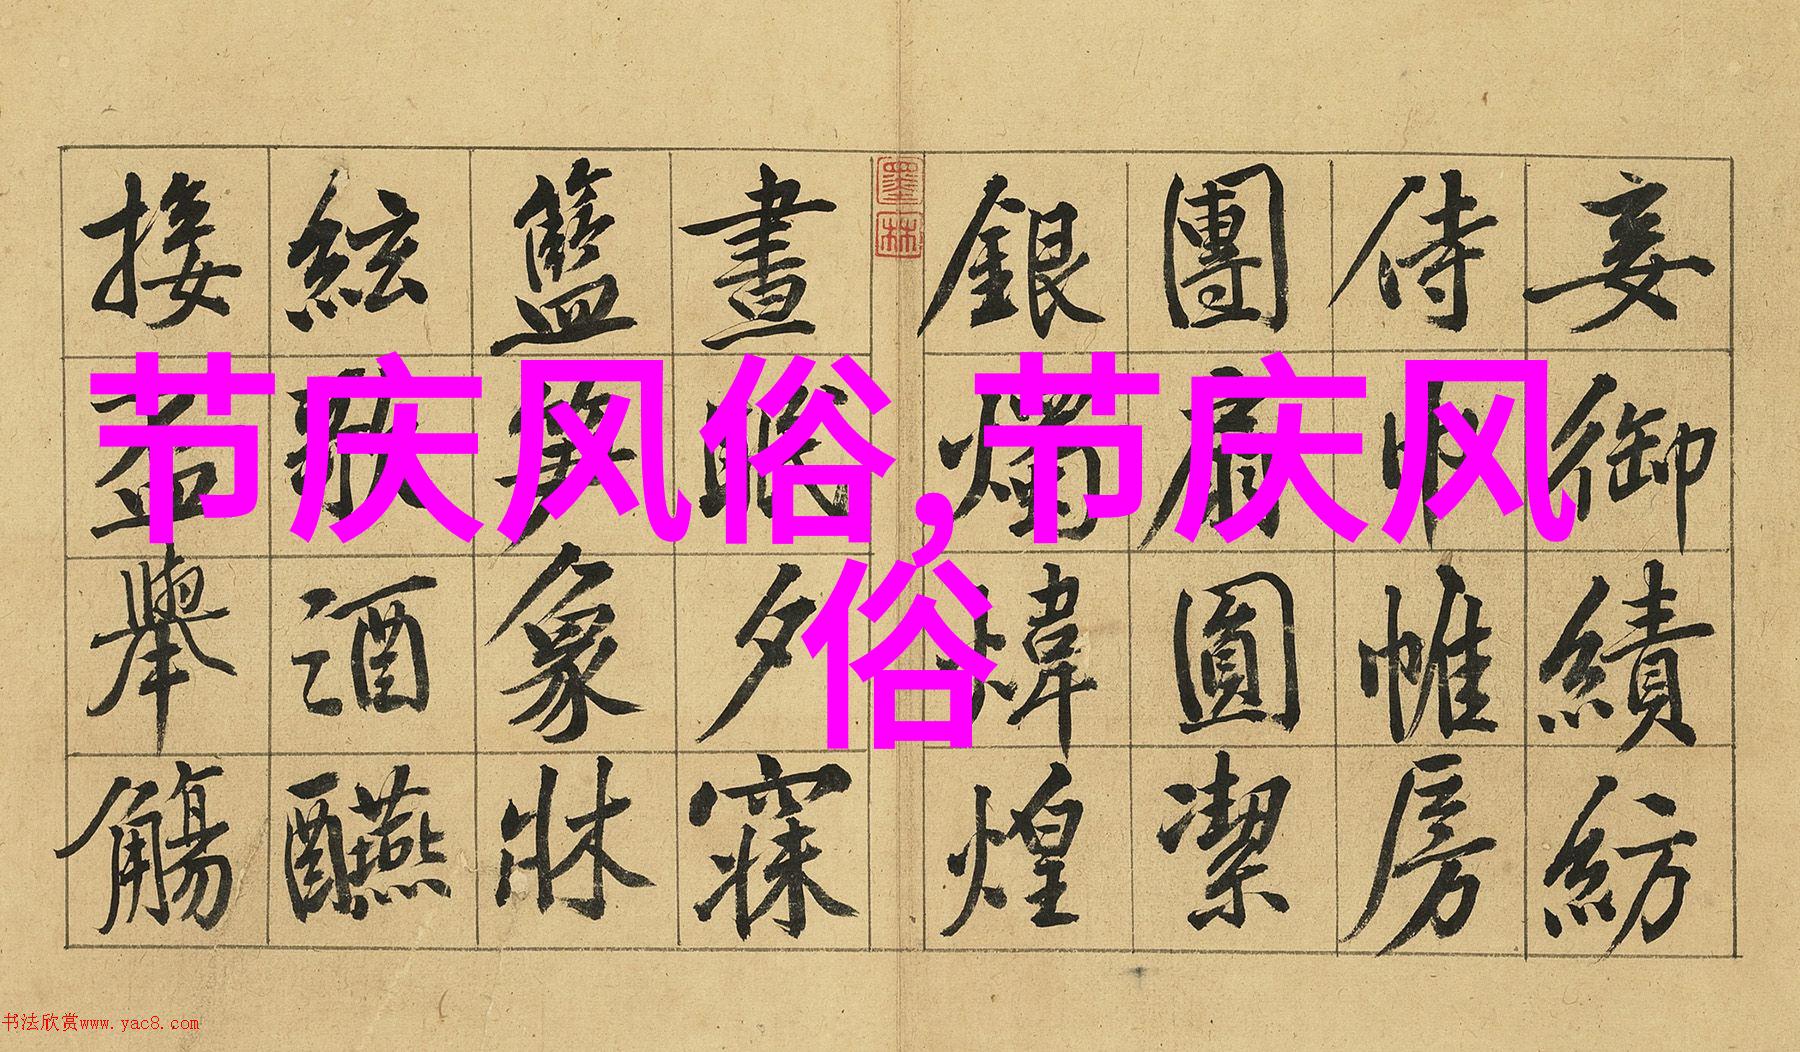 妾御績紡
侍巾帷房
團扇圓潔
銀燭煒煌
墨林
晝眠夕寐
籃笋象牀
絃歌酒醼
接盃舉觴
节庆风俗,节庆风
俗
书法欣赏www.yac8.com